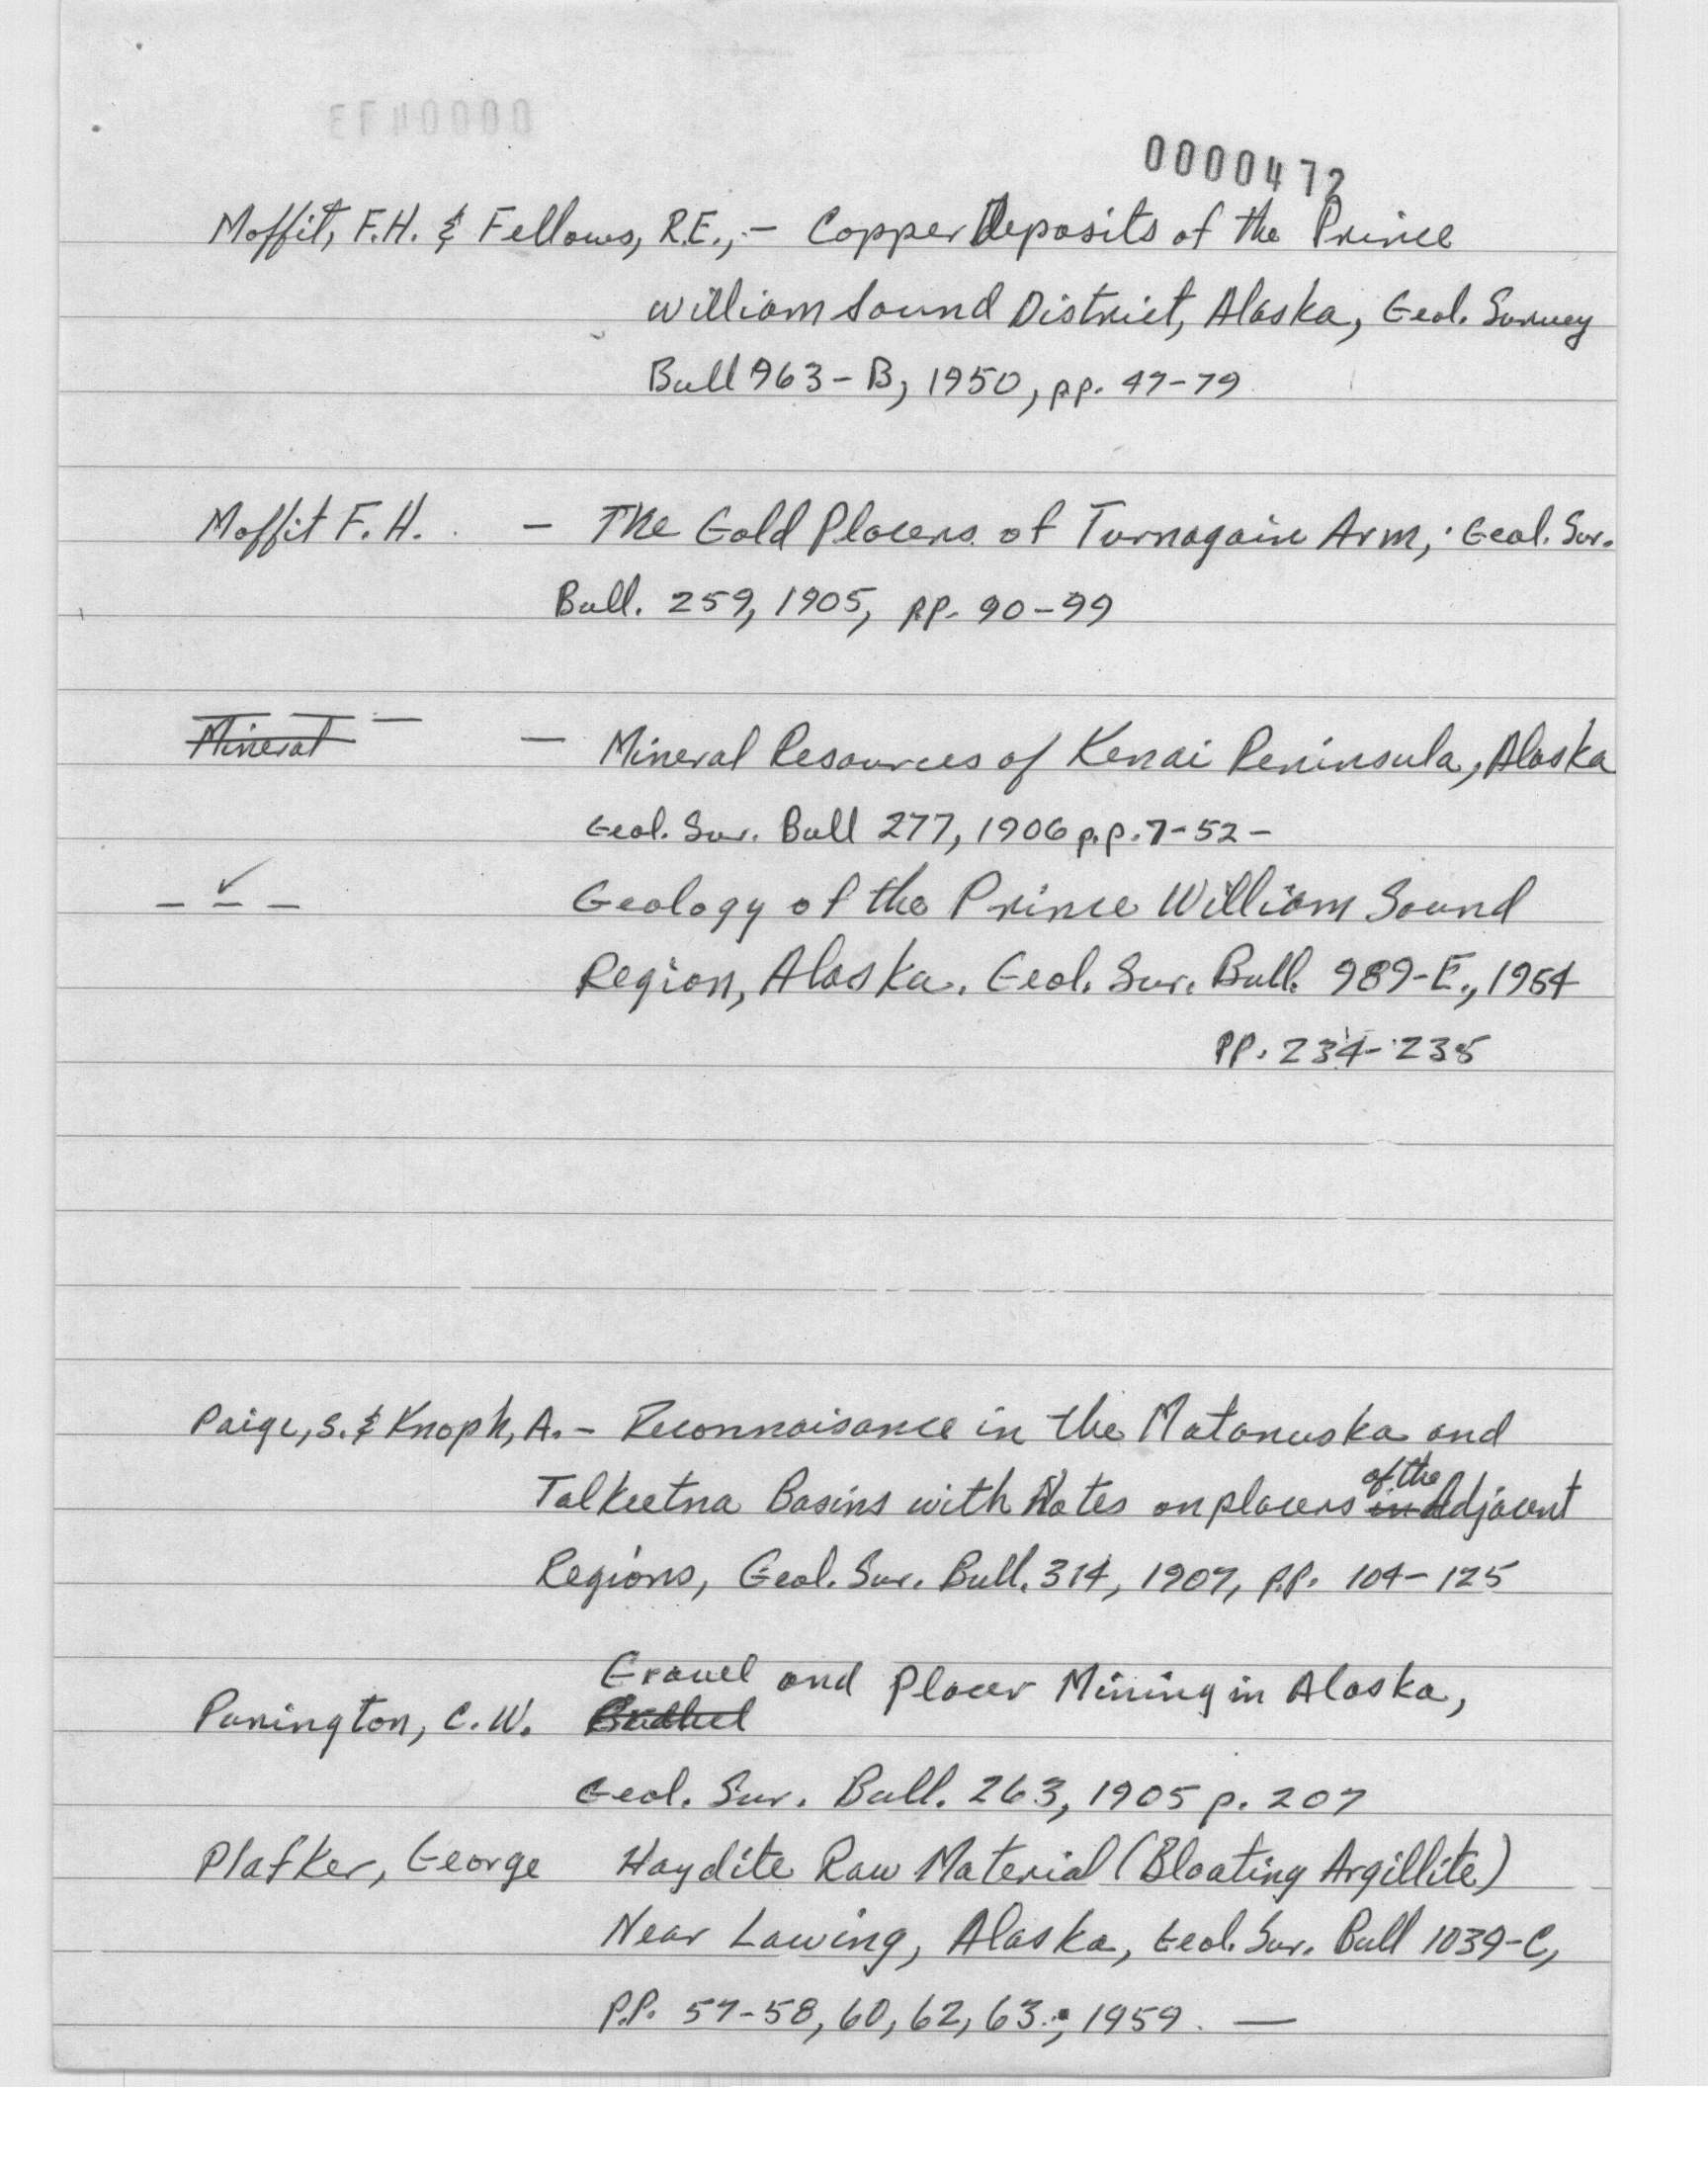 0000472
Moffit, F.H. & Fellows, R.E., - Copper Deposits of the Prince
William Sound District, Alaska, Geol. Survey
Bull 963-B, 1950, pp. 47-79
Moffit F. H. - The Gold Placers of Turnagain Arm, Geol. Sur.
Bull. 259, 1905, pp. 90-99
Mineral - Mineral Resources of Kenai Peninsula, Alaska
Geol. Sur. Bull 277, 1906 p.p. 7-52-
- - - Geology of the Prince William Sound
Region, Alaska. Geol. Sur. Bull. 989-E., 1954
pp. 234-235
Paige, S. & Knoph, A. - Reconnaisance in the Matanuska and
of the
Talkeetna Basins with Notes on placers in Adjacent
Regions, Geol. Sur. Bull. 314, 1907, p.p. 104-125
Gravel and Placer Mining in Alaska,
Purington, C. W.
Geol. Sur. Bull. 263, 1905 p. 207
Plafker, George Haydite Raw Material (Bloating Argillite)
Near Lawing, Alaska, Geol. Sur. Bull 1039-C,
P.P. 57-58, 60, 62, 63, 1959. -